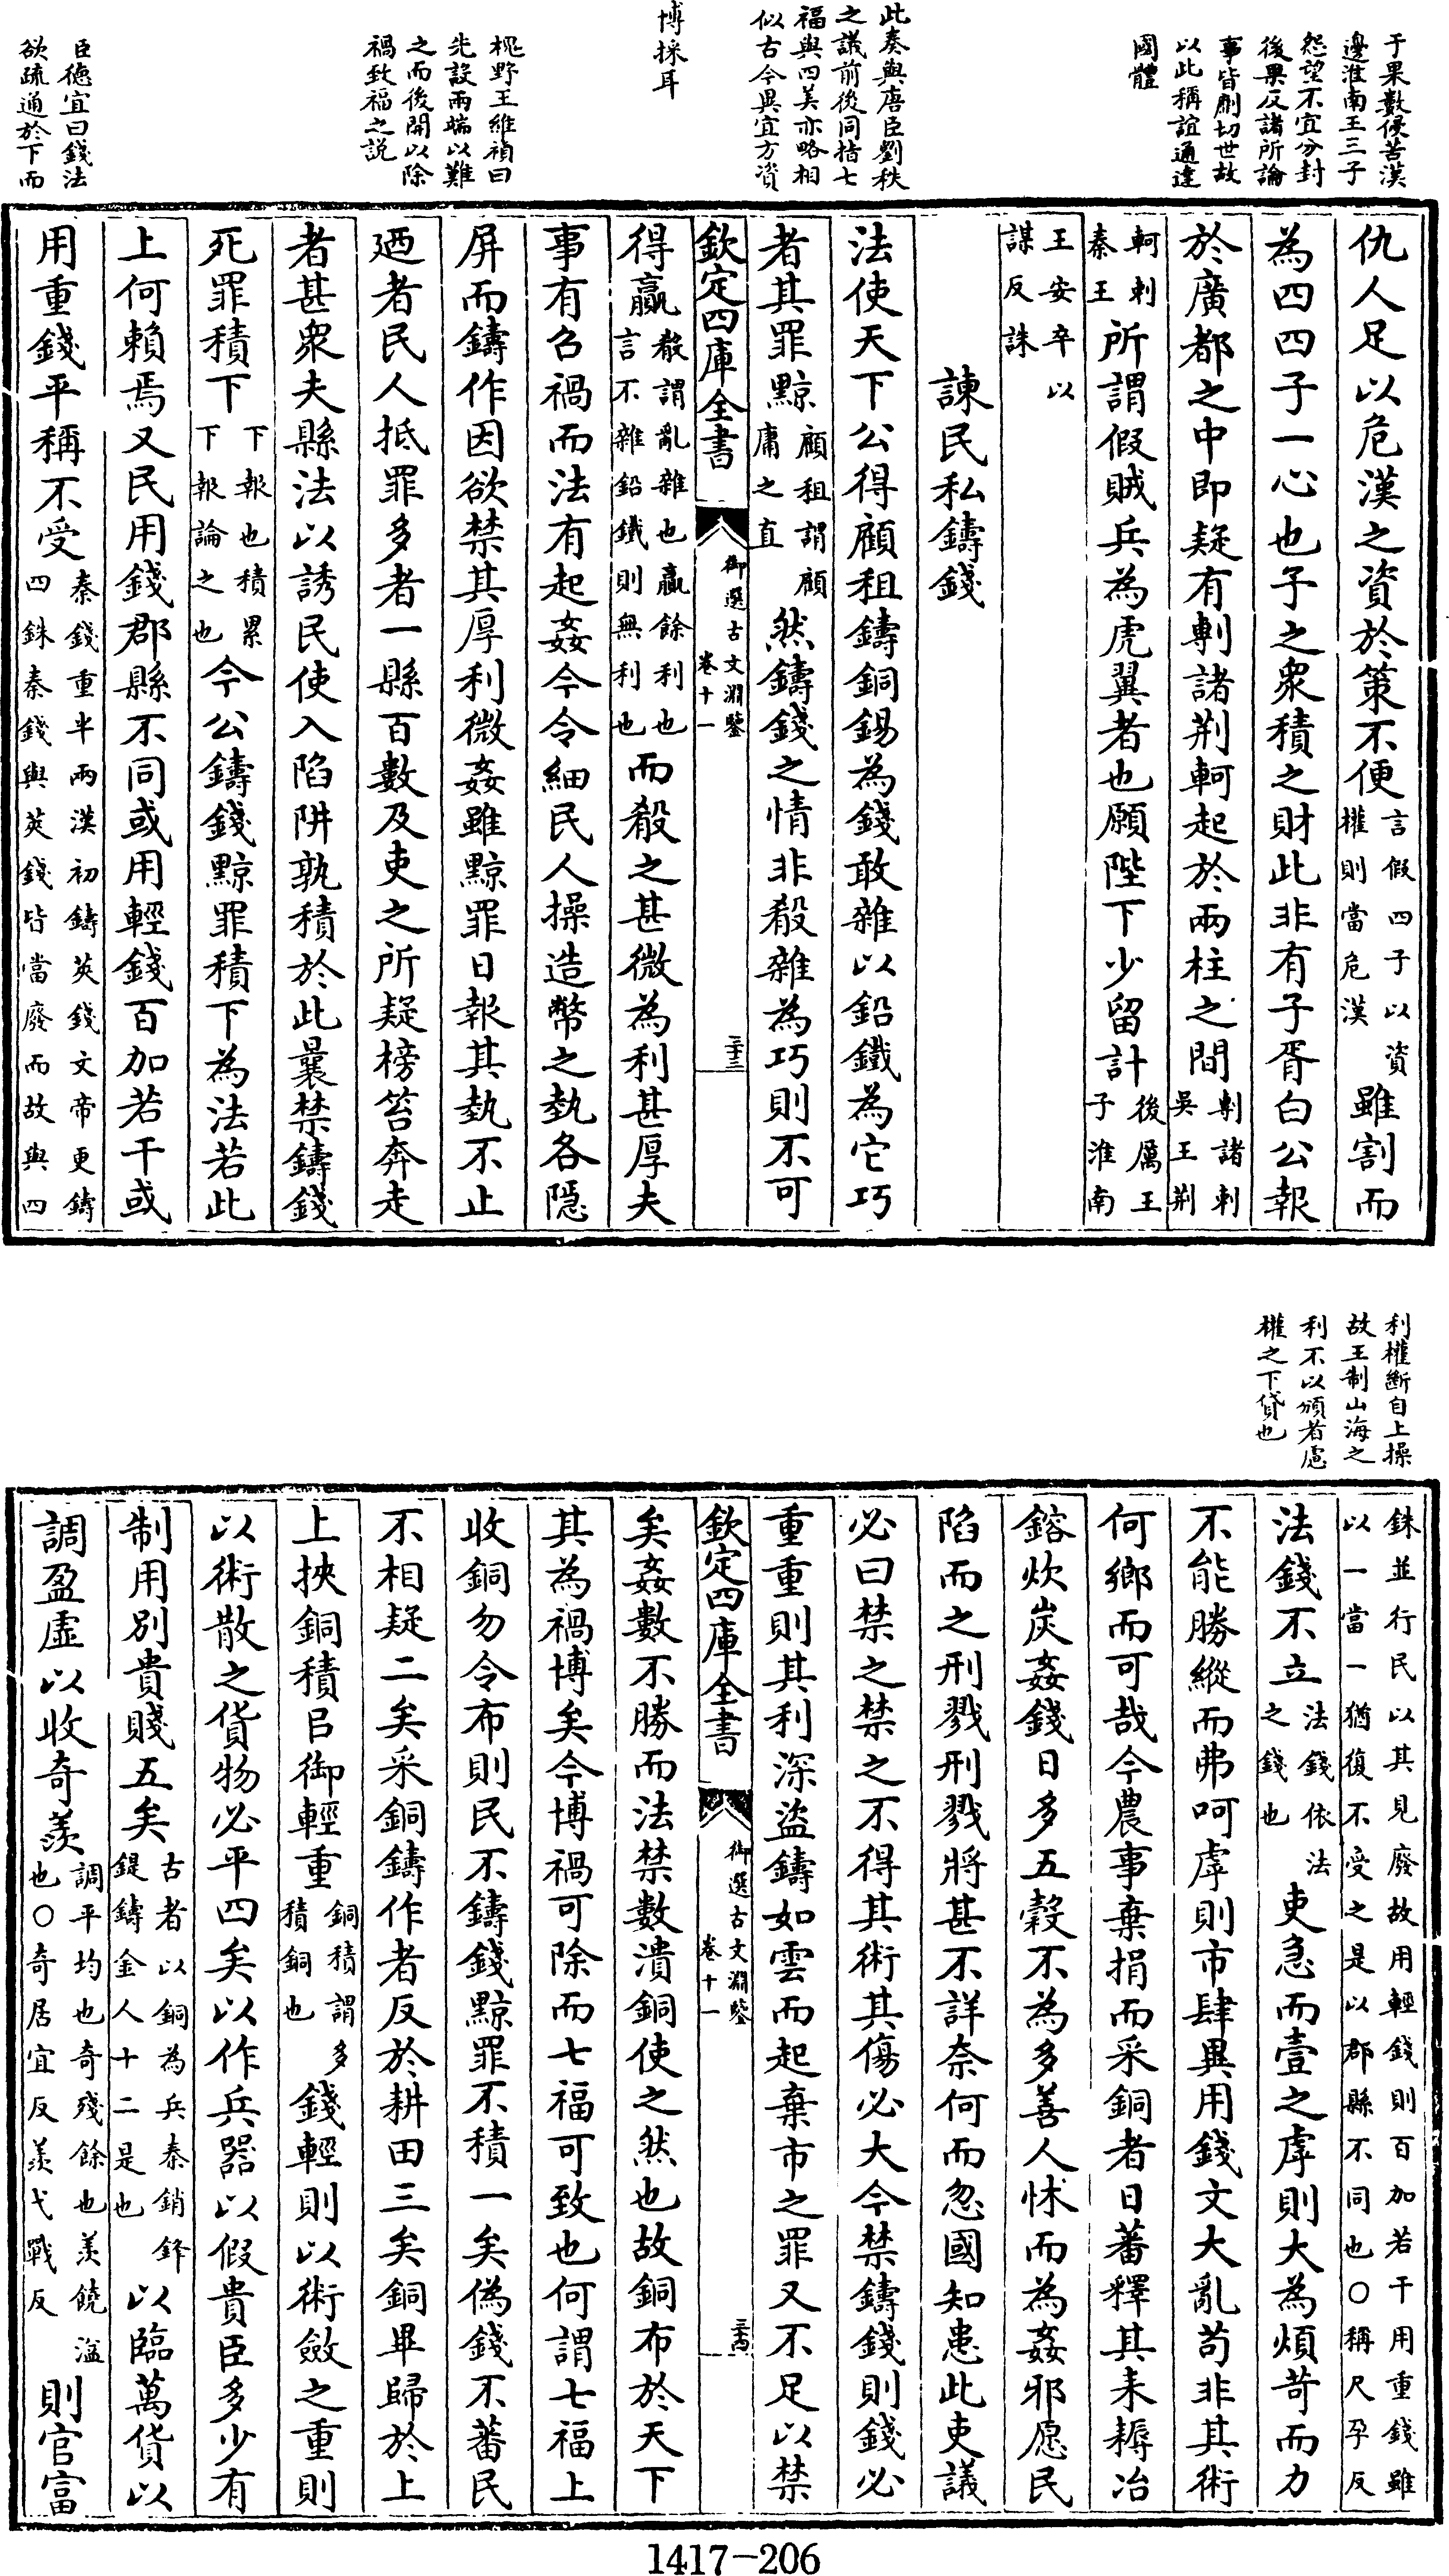 于果數侵苦漢
邊淮南王三子
怨望不宜分封
後果反諸所論
事皆剴切世故
以此稱誼通達
國體
此奏與唐臣劉秩
之議前後同揆七
福與四美亦略相
似古今異宜方資
博採耳
槐野王維禎曰
先設兩端以難
之而後開以除
禍致福之説
臣德宜曰錢法
欲疏通於下而
仇人足以危漢之資於策不便言假四子以資權則當危漢雖割而
為四四子一心也子之衆積之財此非有子胥白公報
於廣都之中即疑有剸諸荆軻起於兩柱之間剸諸刺吳王荆
軻刺秦王所謂假賊兵為虎翼者也願陛下少留計後厲王子淮南
王安卒以謀反誅
諫民私鑄錢
法使天下公得顧租鑄銅錫為錢敢雜以鉛鐵為它巧
者其罪黥顧租謂顧庸之直然鑄錢之情非殽雜為巧則不可
欽定四庫全書
御選古文淵鑒
卷十一
三十三
得贏殽謂亂雜也贏餘利也言不雜鉛鐵則無利也而殽之甚微為利甚厚夫
事有召禍而法有起姦今令細民人操造幣之埶各隱
屏而鑄作因欲禁其厚利微姦雖黥罪日報其埶不止
廼者民人抵罪多者一縣百數及吏之所疑榜笞奔走
者甚衆夫縣法以誘民使入陷阱孰積於此曩禁鑄錢
死罪積下下報也積累下報論之也今公鑄錢黥罪積下為法若此
上何賴焉又民用錢郡縣不同或用輕錢百加若干或
用重錢平稱不受秦錢重半兩漢初鑄莢錢文帝更鑄四銖秦錢與莢錢皆當廢而故與四
利權斷自上操
故王制山海之
利不以頒者慮
權之下貸也
銖並行民以其見廢故用輕錢則百加若干用重錢雖以一當一猶復不受之是以郡縣不同也○稱尺孕反
法錢不立法錢依法之錢也吏急而壹之虖則大為煩苛而力
不能勝縱而弗呵虖則市肆異用錢文大亂苟非其術
何鄉而可哉今農事棄捐而采銅者日蕃釋其耒耨冶
鎔炊炭姦錢日多五穀不為多善人怵而為姦邪愿民
陷而之刑戮刑戮將甚不詳奈何而忽國知患此吏議
必曰禁之禁之不得其術其傷必大今禁鑄錢則錢必
重重則其利深盜鑄如雲而起棄市之罪又不足以禁
欽定四庫全書
御選古文淵鑒
卷十一
三十四
矣姦數不勝而法禁數潰銅使之然也故銅布於天下
其為禍博矣今博禍可除而七福可致也何謂七福上
收銅勿令布則民不鑄錢黥罪不積一矣偽錢不蕃民
不相疑二矣采銅鑄作者反於耕田三矣銅畢歸於上
上挾銅積㠯御輕重銅積謂多積銅也錢輕則以術斂之重則
以術散之貨物必平四矣以作兵器以假貴臣多少有
制用別貴賤五矣古者以銅為兵秦銷鋒鍉鑄金人十二是也以臨萬貨以
調盈虛以收奇羨調平均也奇殘餘也羨饒溢也○奇居宜反羨弋戰反則官富
1417-206